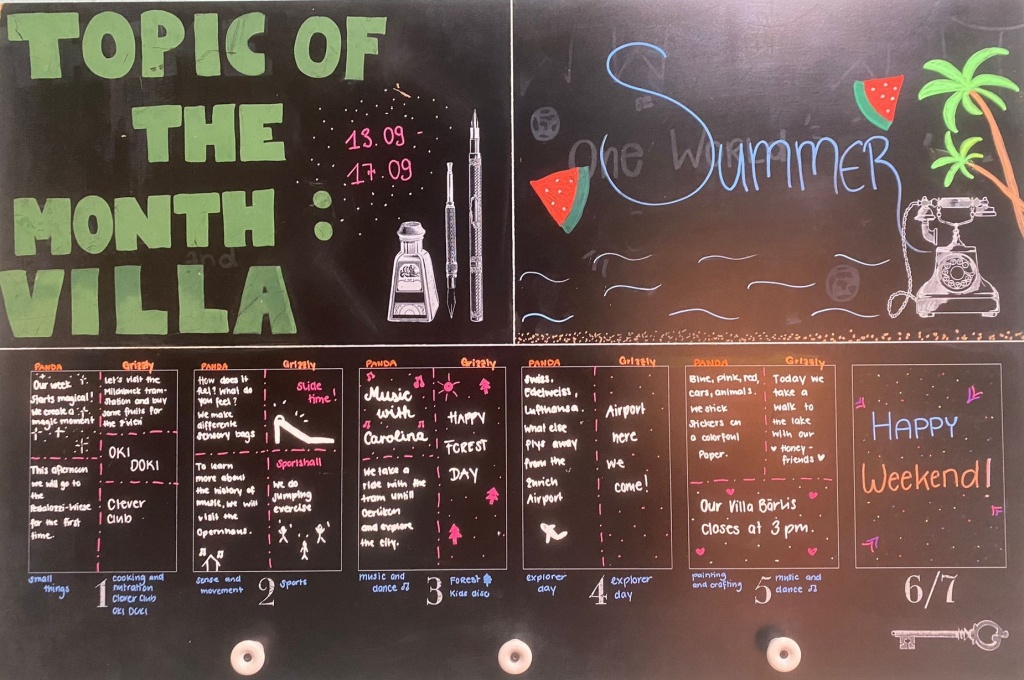 TOPIC OF
THE
MONTH :
VILLA
13.09 -
17.09
One World
and
SUMMER
PANDA
Our week
starts magical!
we create a
magic moment
This afternoon
we will go to
the
Pestalozzi-Wiese
for the first
time.
small
things
Grizzly
Let's visit the
Milchbuck tram-
station and buy
some fruits for
the
OKI
DOKI
Clever
Club
cooking and
nutration
Clever Club
OKI DOKI
1
PANDA
How does it
feel? what do
you feel?
We make
differente
sensory bags
To learn
more about
the history of
music, we will
visit the
Opernhaus.
sense and
movement
Grizzly
slide
time!
Sportshall
we do
jumping
exercise
sports
2
PANDA
Music
with
Carolina
we take a
ride with the
tram untill
Oerlikon
and explore
the city.
music and
dance
Grizzly
HAPPY
FOREST
DAY
FOREST
Kids disco
3
PANDA
Swiss,
Edelweiss,
Lufthansa
what else
flys away
from the
Zurich
Airport
explorer
day
Grizzly
Airport
here
we
come!
explorer
day
4
PANDA
Blue, pink, red,
cars, animals.
we stick
stickers on
a colorful
Paper.
Grizzly
Today we
take a
walk to
the lake
with our
♥ Honey-
friends ♥
Our Villa Bärlis
closes at 3 pm.
painting
and crafting
music and
dance
5
HAPPY
Weekend!
6/7